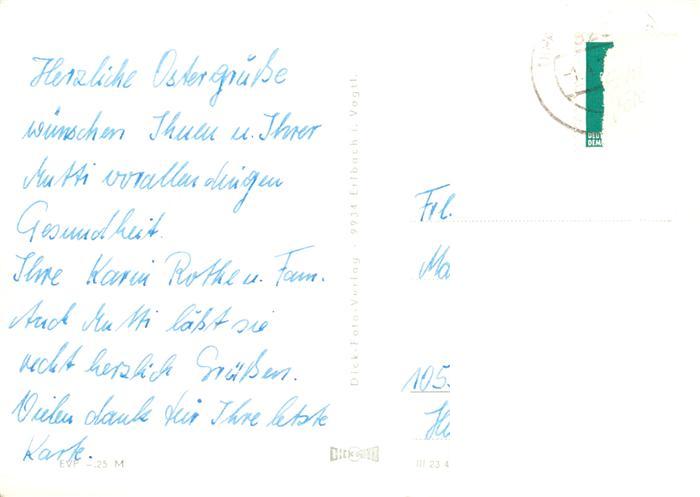 Herzliche Ostergrüße
wünschen Ihnen u. Ihrer
Mutti vorallendingen
Gesundheit.
Ihre Karin Rothe u. Fam.
Auch Mutti läßt sie
recht herzlich Grüßen.
Vielen dank für Ihre letzte
Karte.
EVP –.25 M
Dick-Foto-Verlag - 9934 Erlbach i. Vogtl.
DICK
DEUT
DEM
Frl.
Ma
105
III 23 4